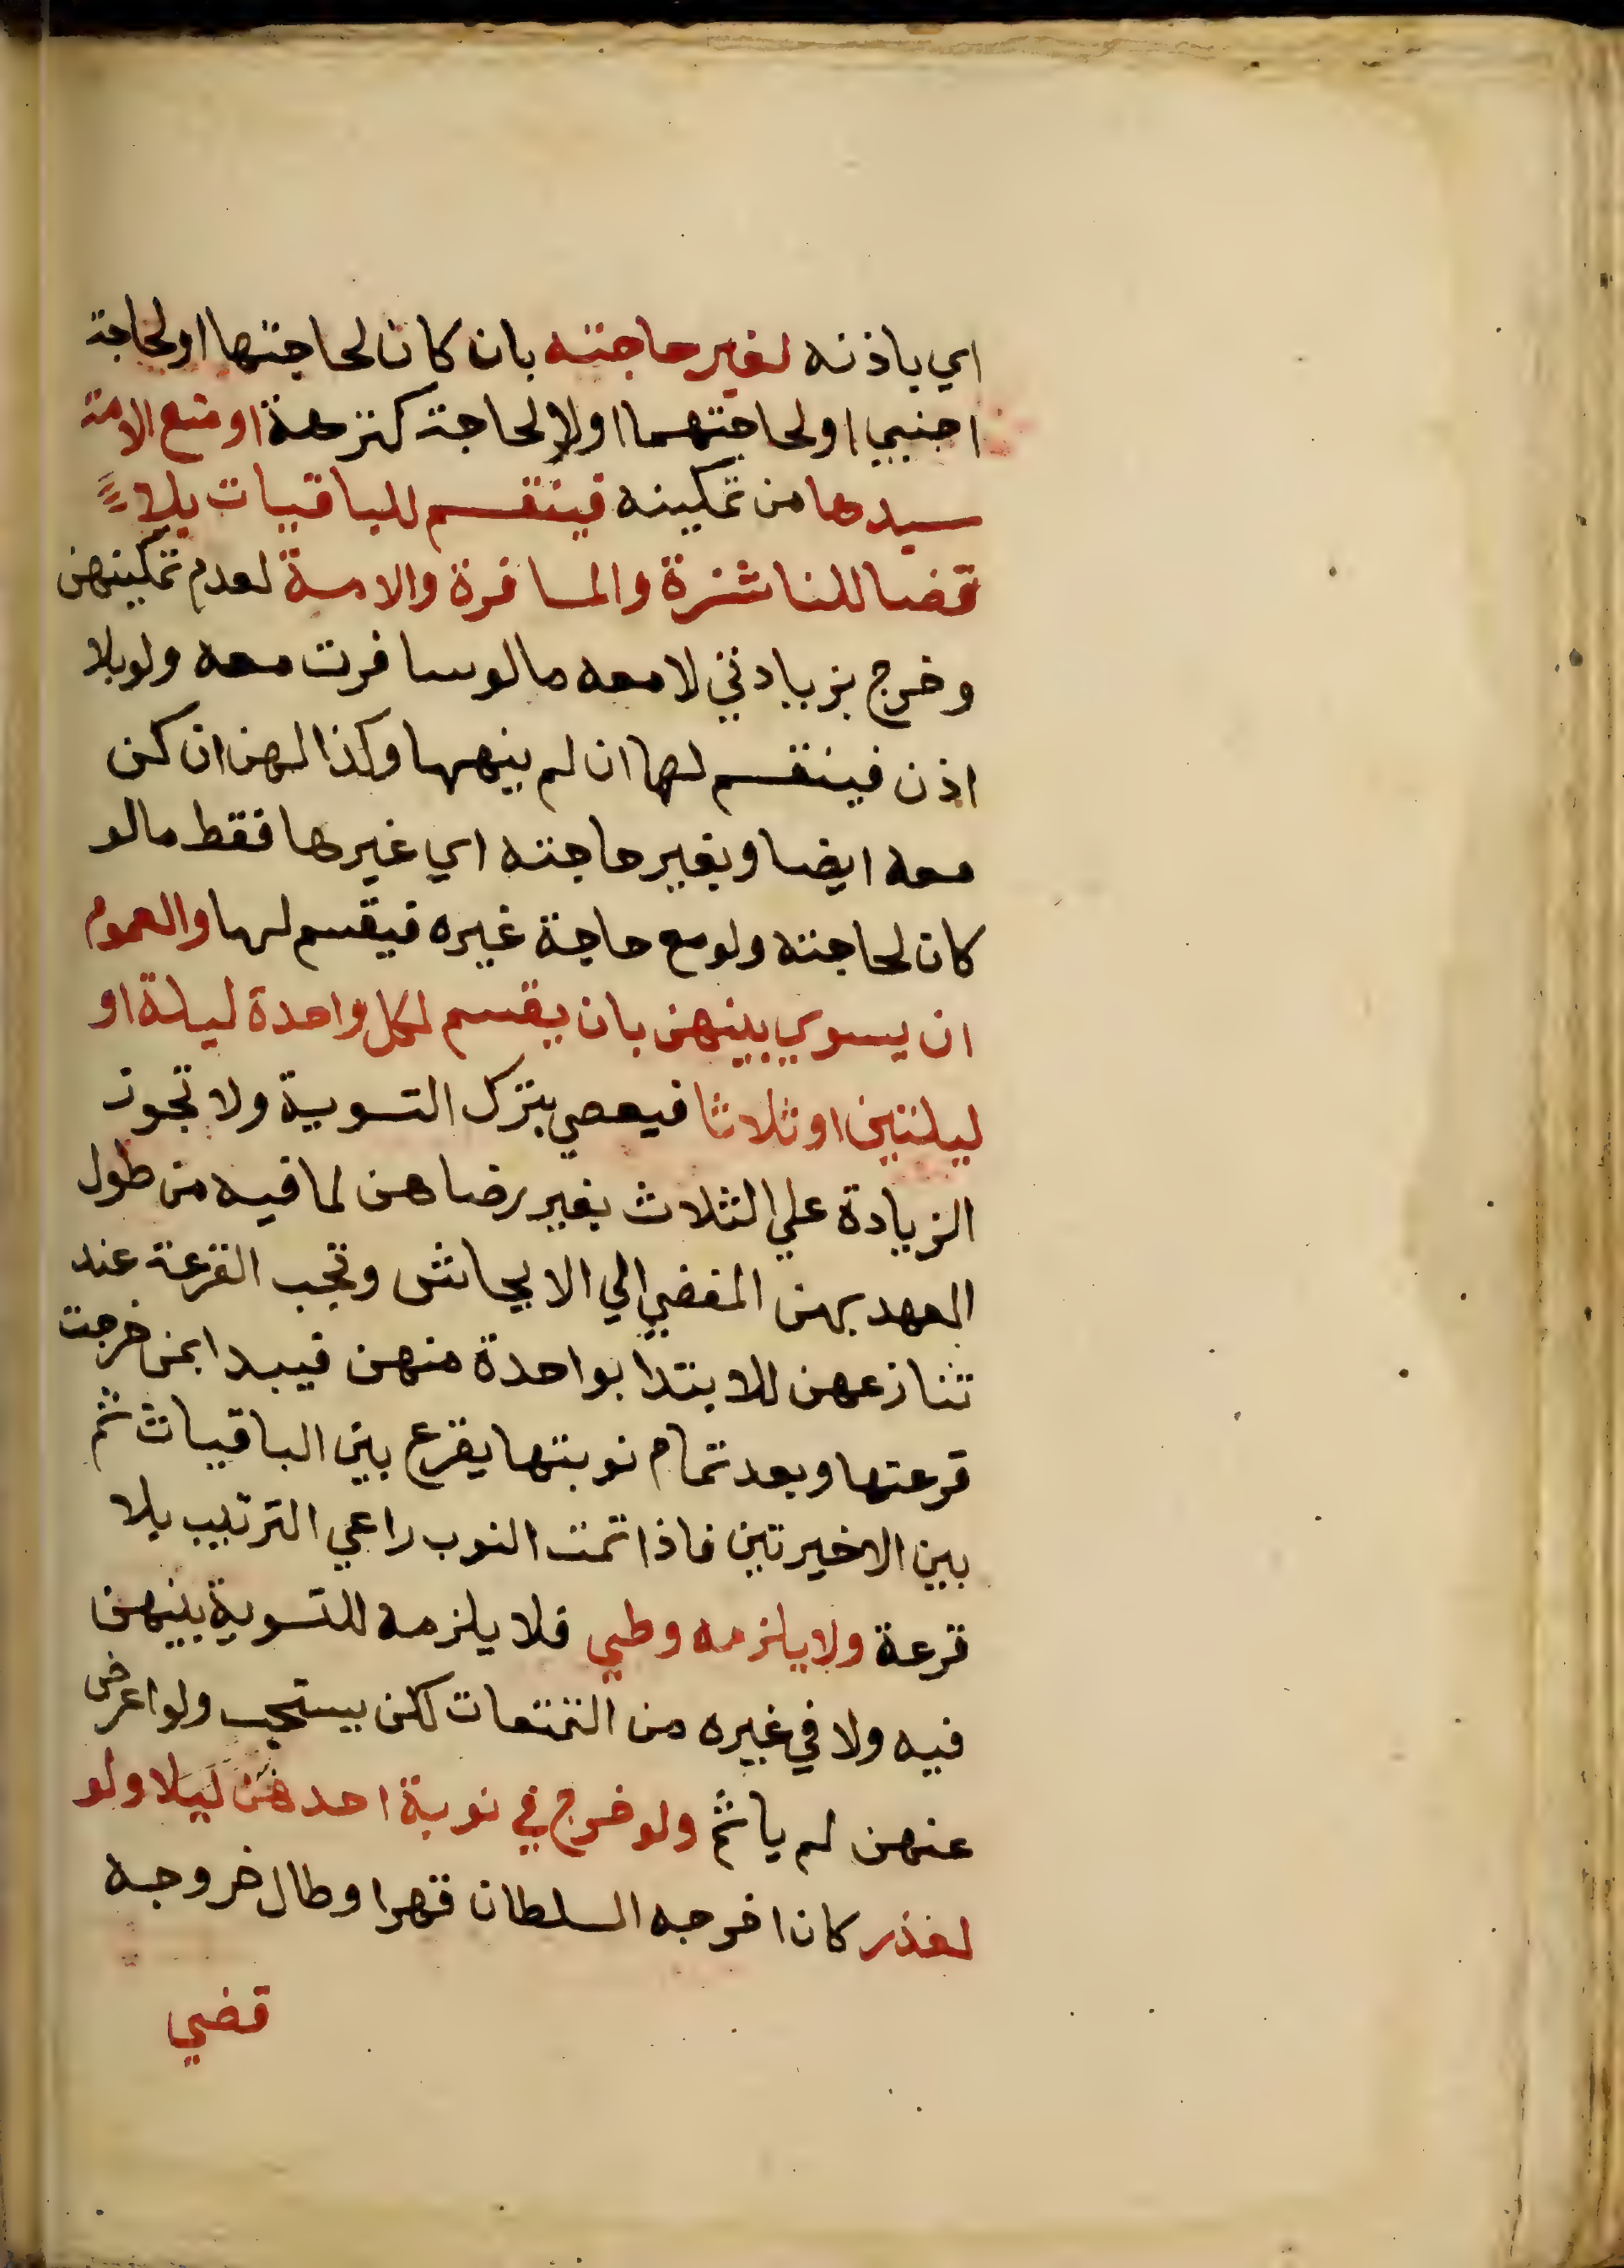 اي باذنه لغير حاجته بان كان لحاجتها او لحاجة
اجنبي او لحاجتهما او لا لحاجة كنزهة او منع الامة
سيدها من تمكينه فينقسم للباقيات بلا
قضا للناشزة والمسافرة والامة لعدم تمكينهن
وخرج بزيادتي لا معه ما لو سافرت معه ولو بلا
اذن فينقسم لها ان لم ينهها وكذا لهن ان كن
معه ايضا وبغير حاجته اي غيرها فقط ما لو
كان لحاجته ولو مع حاجة غيره فيقسم لها والعموم
ان يسوي بينهن بان يقسم لكل واحدة ليلة او
ليلتين او ثلاثا فيعصي بترك التسوية ولا تجوز
الزيادة علي الثلاث بغير رضاهن لما فيه من طول
العهد بهن المفضي الي الايحاش وتجب القرعة عند
تنازعهن للابتدا بواحدة منهن فيبدا بمن خرجت
قرعتها وبعد تمام نوبتها يقرع بين الباقيات ثم
بين الاخيرتين فاذا تمت النوب راعي الترتيب بلا
قرعة ولا يلزمه وطي فلا يلزمه للتسوية بينهن
فيه ولا في غيره من التمتعات لكن يستحب ولو اعرض
عنهن لم ياثم ولو خرج في نوبة احدهن ليلا ولو
لعذر كان اخرجه السلطان قهرا وطال خروجه
قضي